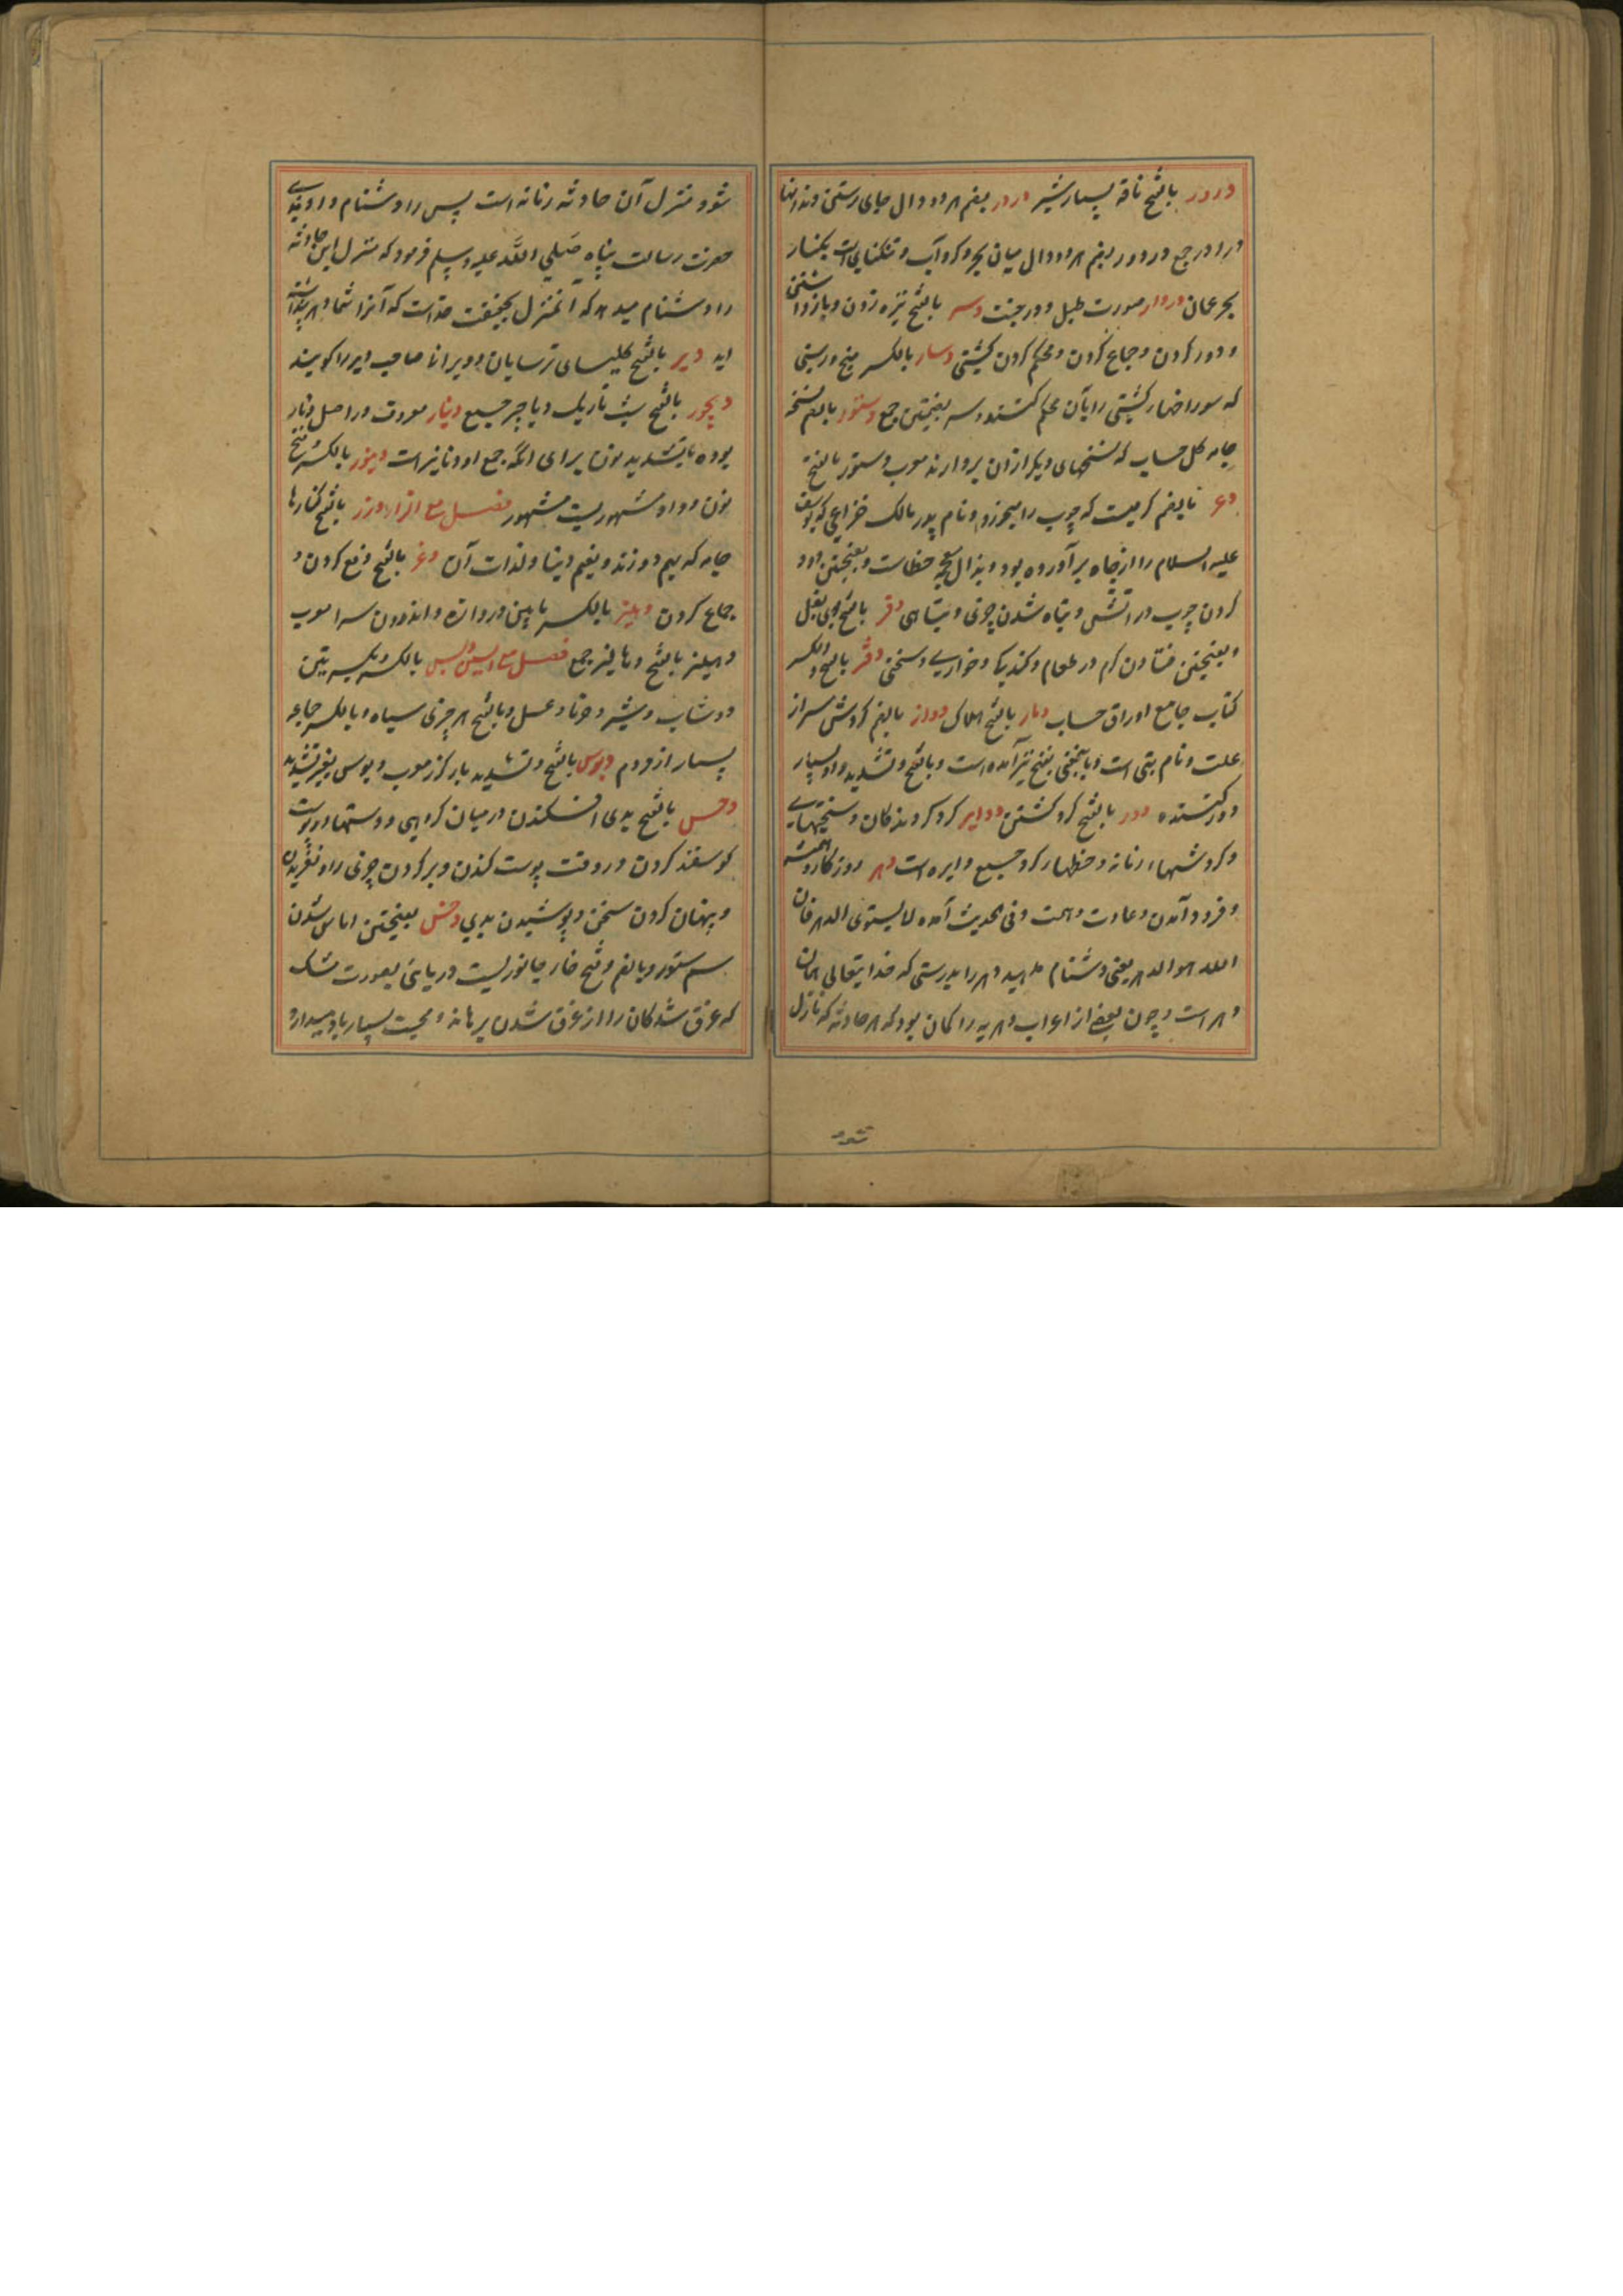 درور بالفتح ناقه بسیار شیر دردر بضم هر دو دال جای رستن دندانها
درادر جمع و دردور بضم هر دو دال میان بحر و گرد آب و تنکنایی است بکنار
بحر عمان دردار صورت طبل و درخت دسر بالفتح نیزه زدن و باز داشتن
و دور کردن و جماع کردن و محکم کردن کشتی دسار بالکسر میخ و رسنی
که سوراخهای کشتی را بآن محکم کنند و دسر بضمتین جمع دستور بالضم نسخه
جامه کل حساب که نسخهای دیگر از آن بردارند معرب دستور بالفتح
دعر بالضم کرمیست که چوب را میخورد و نام پدر مالک خزاعی که یوسف
علیه السلام را از چاه برآورده بود و بذال معجمه خطاست و بفتحتین دود
کردن چوب در آتش و تباه شدن چیزی و تباهی دفر بالفتح بوی بغل
و بفتحتین افتادن کرم در طعام و گندیکی و خواری و سختی دفتر بالفتح والکسر
کتاب جامع اوراق حساب دمار بالفتح هلاک دوار بالضم گردش سر از
علت و نام بتی است و باین معنی بفتح نیز آمده است و بالفتح و تشدید واو بسیار
دور کننده دور بالفتح گرد گشتن دوایر گرد گردندگان و سختیهای
و گردشهای زمانه و خطهای گرد جمع دایره است دهر روزگار و همت
و فرود آمدن و عادت و همت و فی الحدیث آمده لا یستوی الدهر فان
الله هو الدهر یعنی دشنام مدهید دهر را بدرستی که خدایتعالی همان
دهر است و چون بعضی از اعراب دهریه را گمان بود که هر حادثه که نازل
شود
شود منزل آن حادثه زمانه است پس را دشنام دادندی
حضرت رسالت پناه صلی الله علیه وسلم فرمود که منزل این حادثه
را دشنام میدهد که آن منزل بحقیقت خداست که آنرا شما دهر پنداشته
اید دیر بالفتح کلیسای ترسایان و دیرانی صاحب دیر را گویند
دیجور بالفتح شب تاریک دیاجر جمع دینار معروف در اصل دنار
بوده بتشدید نون برای آنکه جمع او دنانیر است دینور بالکسر و فتح
نون و واو شهریست مشهور فصل مع الزاء درز بالفتح کنارها
جامه که بهم دوزند و بضم دنیا و لذات آن دغر بالفتح دفع کردن و
جماع کردن دهلیز بالکسر مابین دروازه و اندرون سرا معرب
دهلیز بالفتح دهالیز جمع فصل مع السین دبس بالکسر و بکسرتین
دوشاب و شیر خرما و عسل و بالفتح هر چیزی سیاه و بالکسر جماعه
بسیار از مردم دبوس بالفتح و تشدید با گرز معرب دبوس بغیر تشدید
دحس بالفتح بدی افکندن در میان گروهی و دستها در پوست
گوسفند کردن در وقت پوست کندن و پر کردن چیزی را و لغزیدن
و پنهان کردن سخن و پوشیدن بدی دخس بفتحتین آماس شدن
سم ستور و بالضم و فتح خا جانوریست دریائی بصورت مشک
که غرق شدگان را از غرق شدن برهاند و محبت بسیار با او میدارد